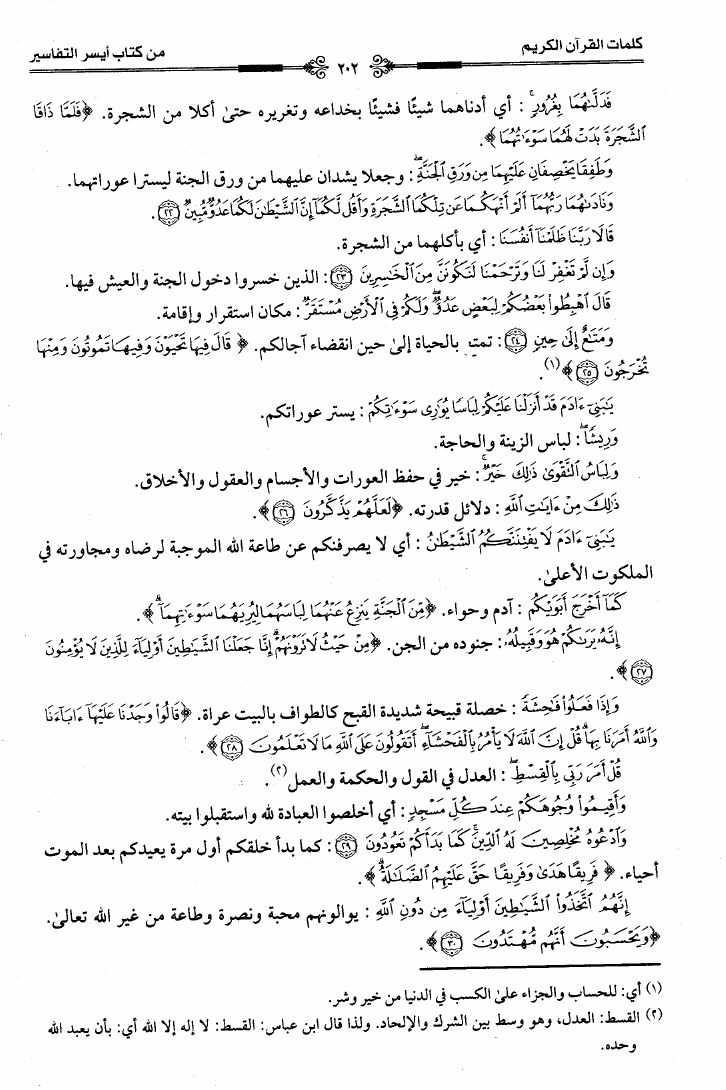 كلمات القرآن الكريم
٢٠٢
من كتاب أيسر التفاسير
فَدَلَّىٰهُمَا بِغُرُورٍ ۚ : أي أدناهما شيئًا فشيئًا بخداعه وتغريره حتىٰ أكلا من الشجرة. ﴿فَلَمَّا ذَاقَا
الشَّجَرَةَ بَدَتْ لَهُمَا سَوْءَٰتُهُمَا﴾.
وَطَفِقَا يَخْصِفَانِ عَلَيْهِمَا مِن وَرَقِ الْجَنَّةِ ۖ : وجعلا يشدان عليهما من ورق الجنة ليسترا عوراتهما.
وَنَادَىٰهُمَا رَبُّهُمَآ أَلَمْ أَنْهَكُمَا عَن تِلْكُمَا الشَّجَرَةِ وَأَقُل لَّكُمَآ إِنَّ الشَّيْطَٰنَ لَكُمَا عَدُوٌّ مُّبِينٌ ﴿٢٢﴾.
قَالَا رَبَّنَا ظَلَمْنَآ أَنفُسَنَا : أي بأكلهما من الشجرة.
وَإِن لَّمْ تَغْفِرْ لَنَا وَتَرْحَمْنَا لَنَكُونَنَّ مِنَ الْخَٰسِرِينَ ﴿٢٣﴾: الذين خسروا دخول الجنة والعيش فيها.
قَالَ اهْبِطُوا۟ بَعْضُكُمْ لِبَعْضٍ عَدُوٌّ ۖ وَلَكُمْ فِى الْأَرْضِ مُسْتَقَرٌّ : مكان استقرار وإقامة.
وَمَتَٰعٌ إِلَىٰ حِينٍ ﴿٢٤﴾: تمتع بالحياة إلىٰ حين انقضاء آجالكم. ﴿قَالَ فِيهَا تَحْيَوْنَ وَفِيهَا تَمُوتُونَ وَمِنْهَا
تُخْرَجُونَ ﴿٢٥﴾﴾(١).
يَٰبَنِىٓ ءَادَمَ قَدْ أَنزَلْنَا عَلَيْكُمْ لِبَاسًا يُوَٰرِى سَوْءَٰتِكُمْ : يستر عوراتكم.
وَرِيشًا ۖ : لباس الزينة والحاجة.
وَلِبَاسُ التَّقْوَىٰ ذَٰلِكَ خَيْرٌ ۚ : خير في حفظ العورات والأجسام والعقول والأخلاق.
ذَٰلِكَ مِنْ ءَايَٰتِ اللَّهِ : دلائل قدرته. ﴿لَعَلَّهُمْ يَذَّكَّرُونَ ﴿٢٦﴾﴾.
يَٰبَنِىٓ ءَادَمَ لَا يَفْتِنَنَّكُمُ الشَّيْطَٰنُ : أي لا يصرفنكم عن طاعة الله الموجبة لرضاه ومجاورته في
الملكوت الأعلىٰ.
كَمَآ أَخْرَجَ أَبَوَيْكُم : آدم وحواء. ﴿مِّنَ الْجَنَّةِ يَنزِعُ عَنْهُمَا لِبَاسَهُمَا لِيُرِيَهُمَا سَوْءَٰتِهِمَآ ۗ﴾.
إِنَّهُۥ يَرَىٰكُمْ هُوَ وَقَبِيلُهُۥ : جنوده من الجن. ﴿مِنْ حَيْثُ لَا تَرَوْنَهُمْ ۗ إِنَّا جَعَلْنَا الشَّيَٰطِينَ أَوْلِيَآءَ لِلَّذِينَ لَا يُؤْمِنُونَ
﴿٢٧﴾﴾.
وَإِذَا فَعَلُوا۟ فَٰحِشَةً : خصلة قبيحة شديدة القبح كالطواف بالبيت عراة. ﴿قَالُوا۟ وَجَدْنَا عَلَيْهَآ ءَابَآءَنَا
وَاللَّهُ أَمَرَنَا بِهَا ۗ قُلْ إِنَّ اللَّهَ لَا يَأْمُرُ بِالْفَحْشَآءِ ۖ أَتَقُولُونَ عَلَى اللَّهِ مَا لَا تَعْلَمُونَ ﴿٢٨﴾﴾.
قُلْ أَمَرَ رَبِّى بِالْقِسْطِ ۖ : العدل في القول والحكمة والعمل(٢).
وَأَقِيمُوا۟ وُجُوهَكُمْ عِندَ كُلِّ مَسْجِدٍ : أي أخلصوا العبادة لله واستقبلوا بيته.
وَادْعُوهُ مُخْلِصِينَ لَهُ الدِّينَ ۚ كَمَا بَدَأَكُمْ تَعُودُونَ ﴿٢٩﴾: كما بدأ خلقكم أول مرة يعيدكم بعد الموت
أحياء. ﴿فَرِيقًا هَدَىٰ وَفَرِيقًا حَقَّ عَلَيْهِمُ الضَّلَٰلَةُ ۗ﴾.
إِنَّهُمُ اتَّخَذُوا۟ الشَّيَٰطِينَ أَوْلِيَآءَ مِن دُونِ اللَّهِ : يوالونهم محبة ونصرة وطاعة من غير الله تعالىٰ.
﴿وَيَحْسَبُونَ أَنَّهُم مُّهْتَدُونَ ﴿٣٠﴾﴾.
(١) أي: للحساب والجزاء علىٰ الكسب في الدنيا من خير وشر.
(٢) القسط: العدل، وهو وسط بين الشرك والإلحاد. ولذا قال ابن عباس: القسط: لا إله إلا الله أي: بأن يعبد الله
وحده.